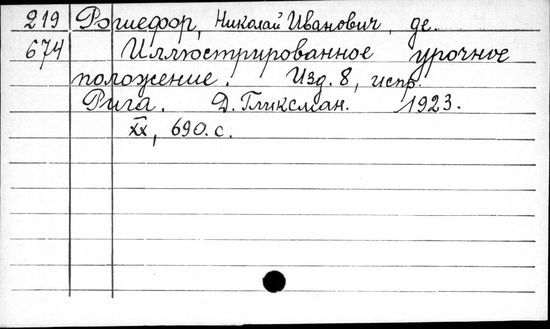 219 Рошефор, Николай Иванович, де.
674 Иллюстрированное урочное
положение. Изд. 8, испр.
Рига. Д. Гликсман. 1923.
XX, 690. с.